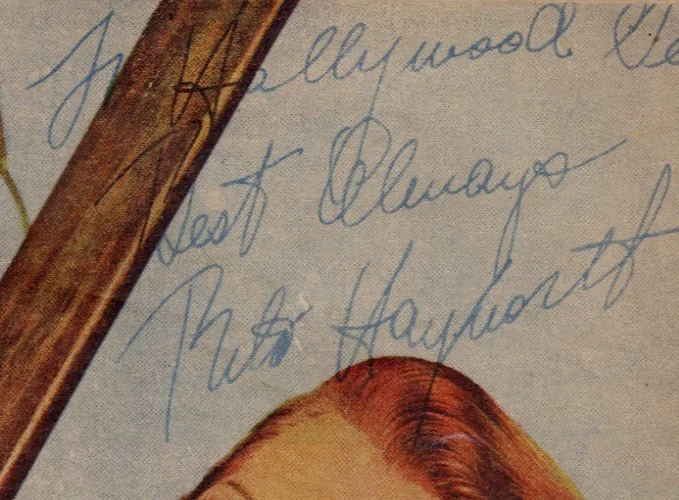 To Hollywood
Best Always
Rita Hayworth